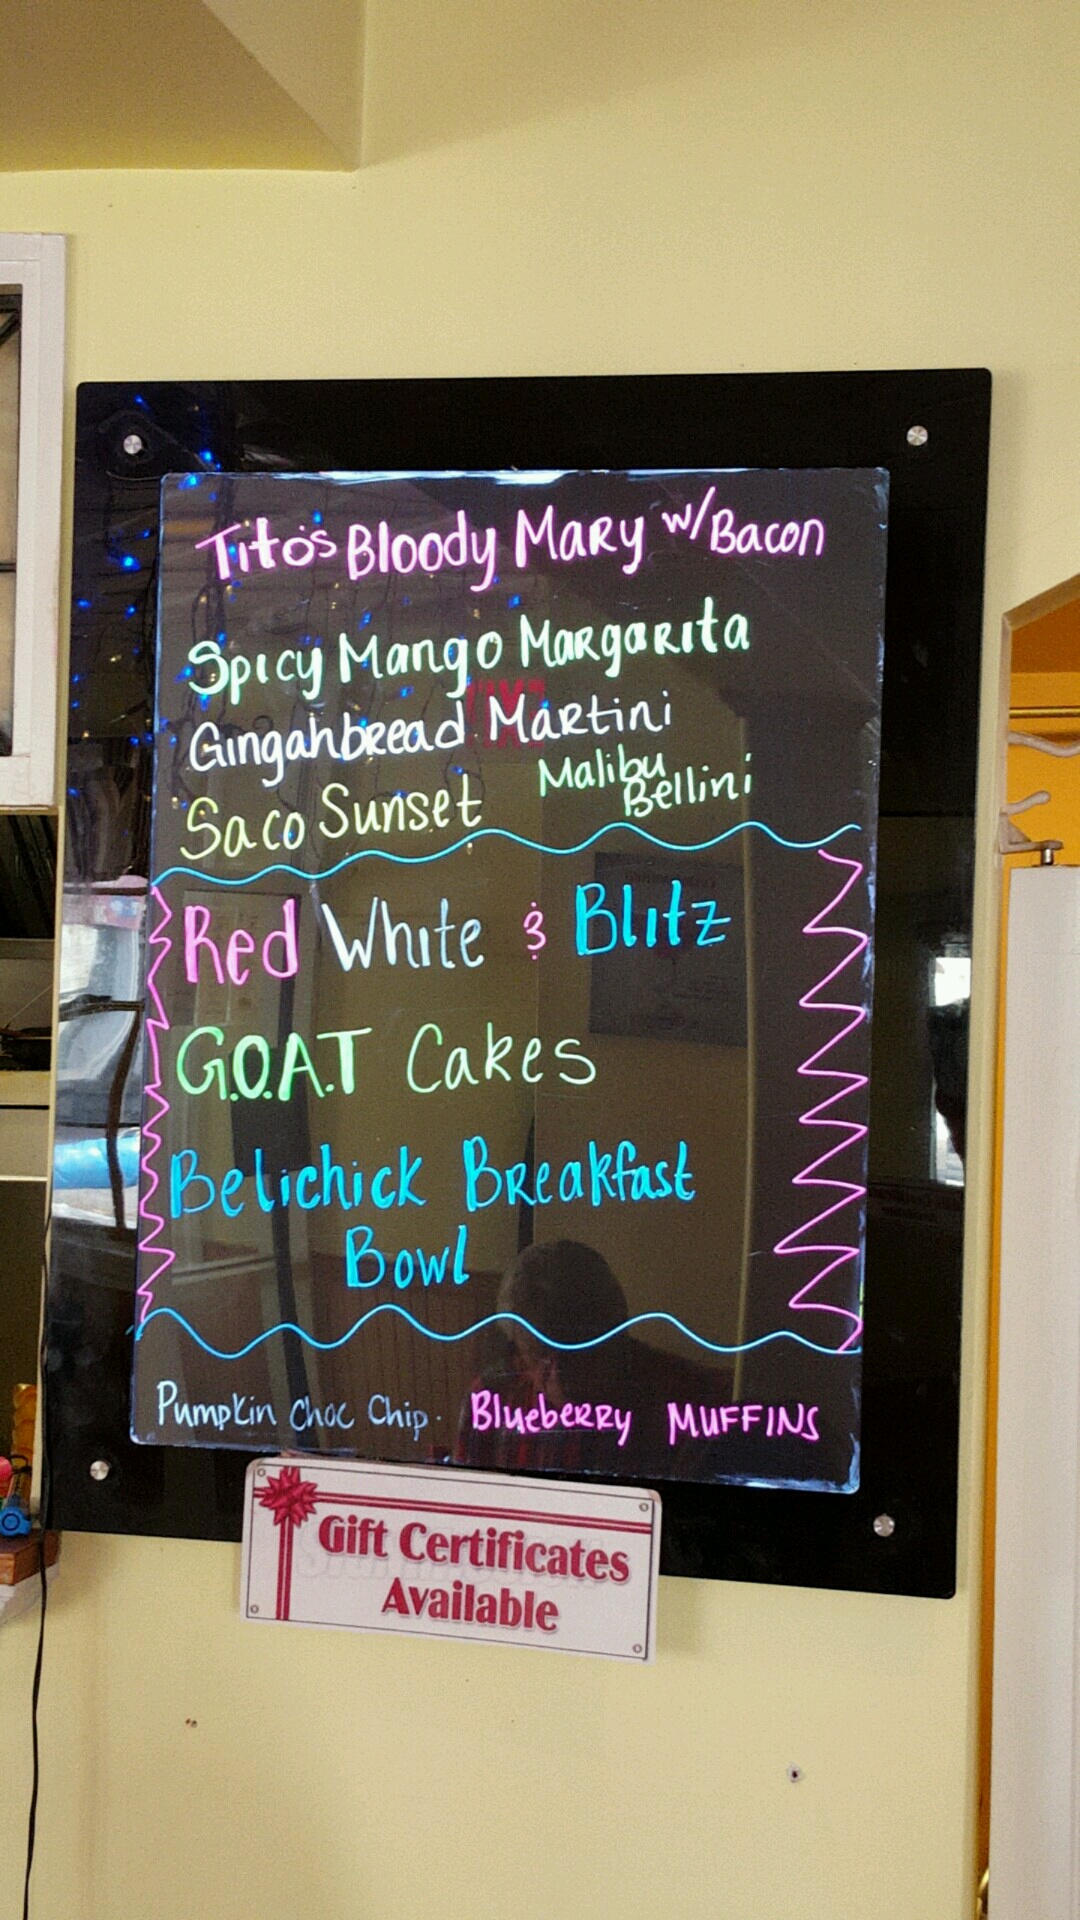 Tito's Bloody Mary w/Bacon
Spicy Mango Margarita
Gingahbread Martini
Saco Sunset Malibu Bellini
Red White & Blitz
G.O.A.T Cakes
Belichick Breakfast
Bowl
Pumpkin Choc Chip. Blueberry MUFFINS
Gift Certificates
Available